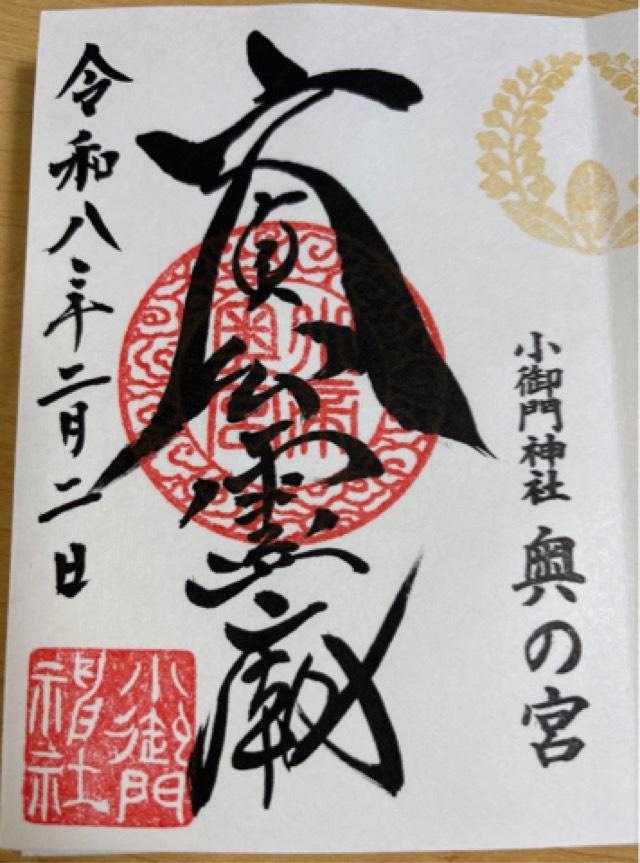 小御門神社 奥の宮
文貞公霊廟
令和八年二月二日
小御門
神社